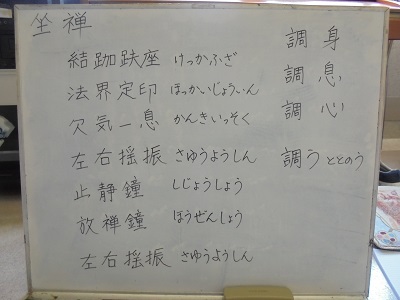 坐禅
結跏趺座 けっかふざ
法界定印 ほっかいじょういん
欠気一息 かんきいっそく
左右揺振 さゆうようしん
止静鐘 しじょうしょう
放禅鐘 ほうぜんしょう
左右揺振 さゆうようしん
調身
調息
調心
調う ととのう